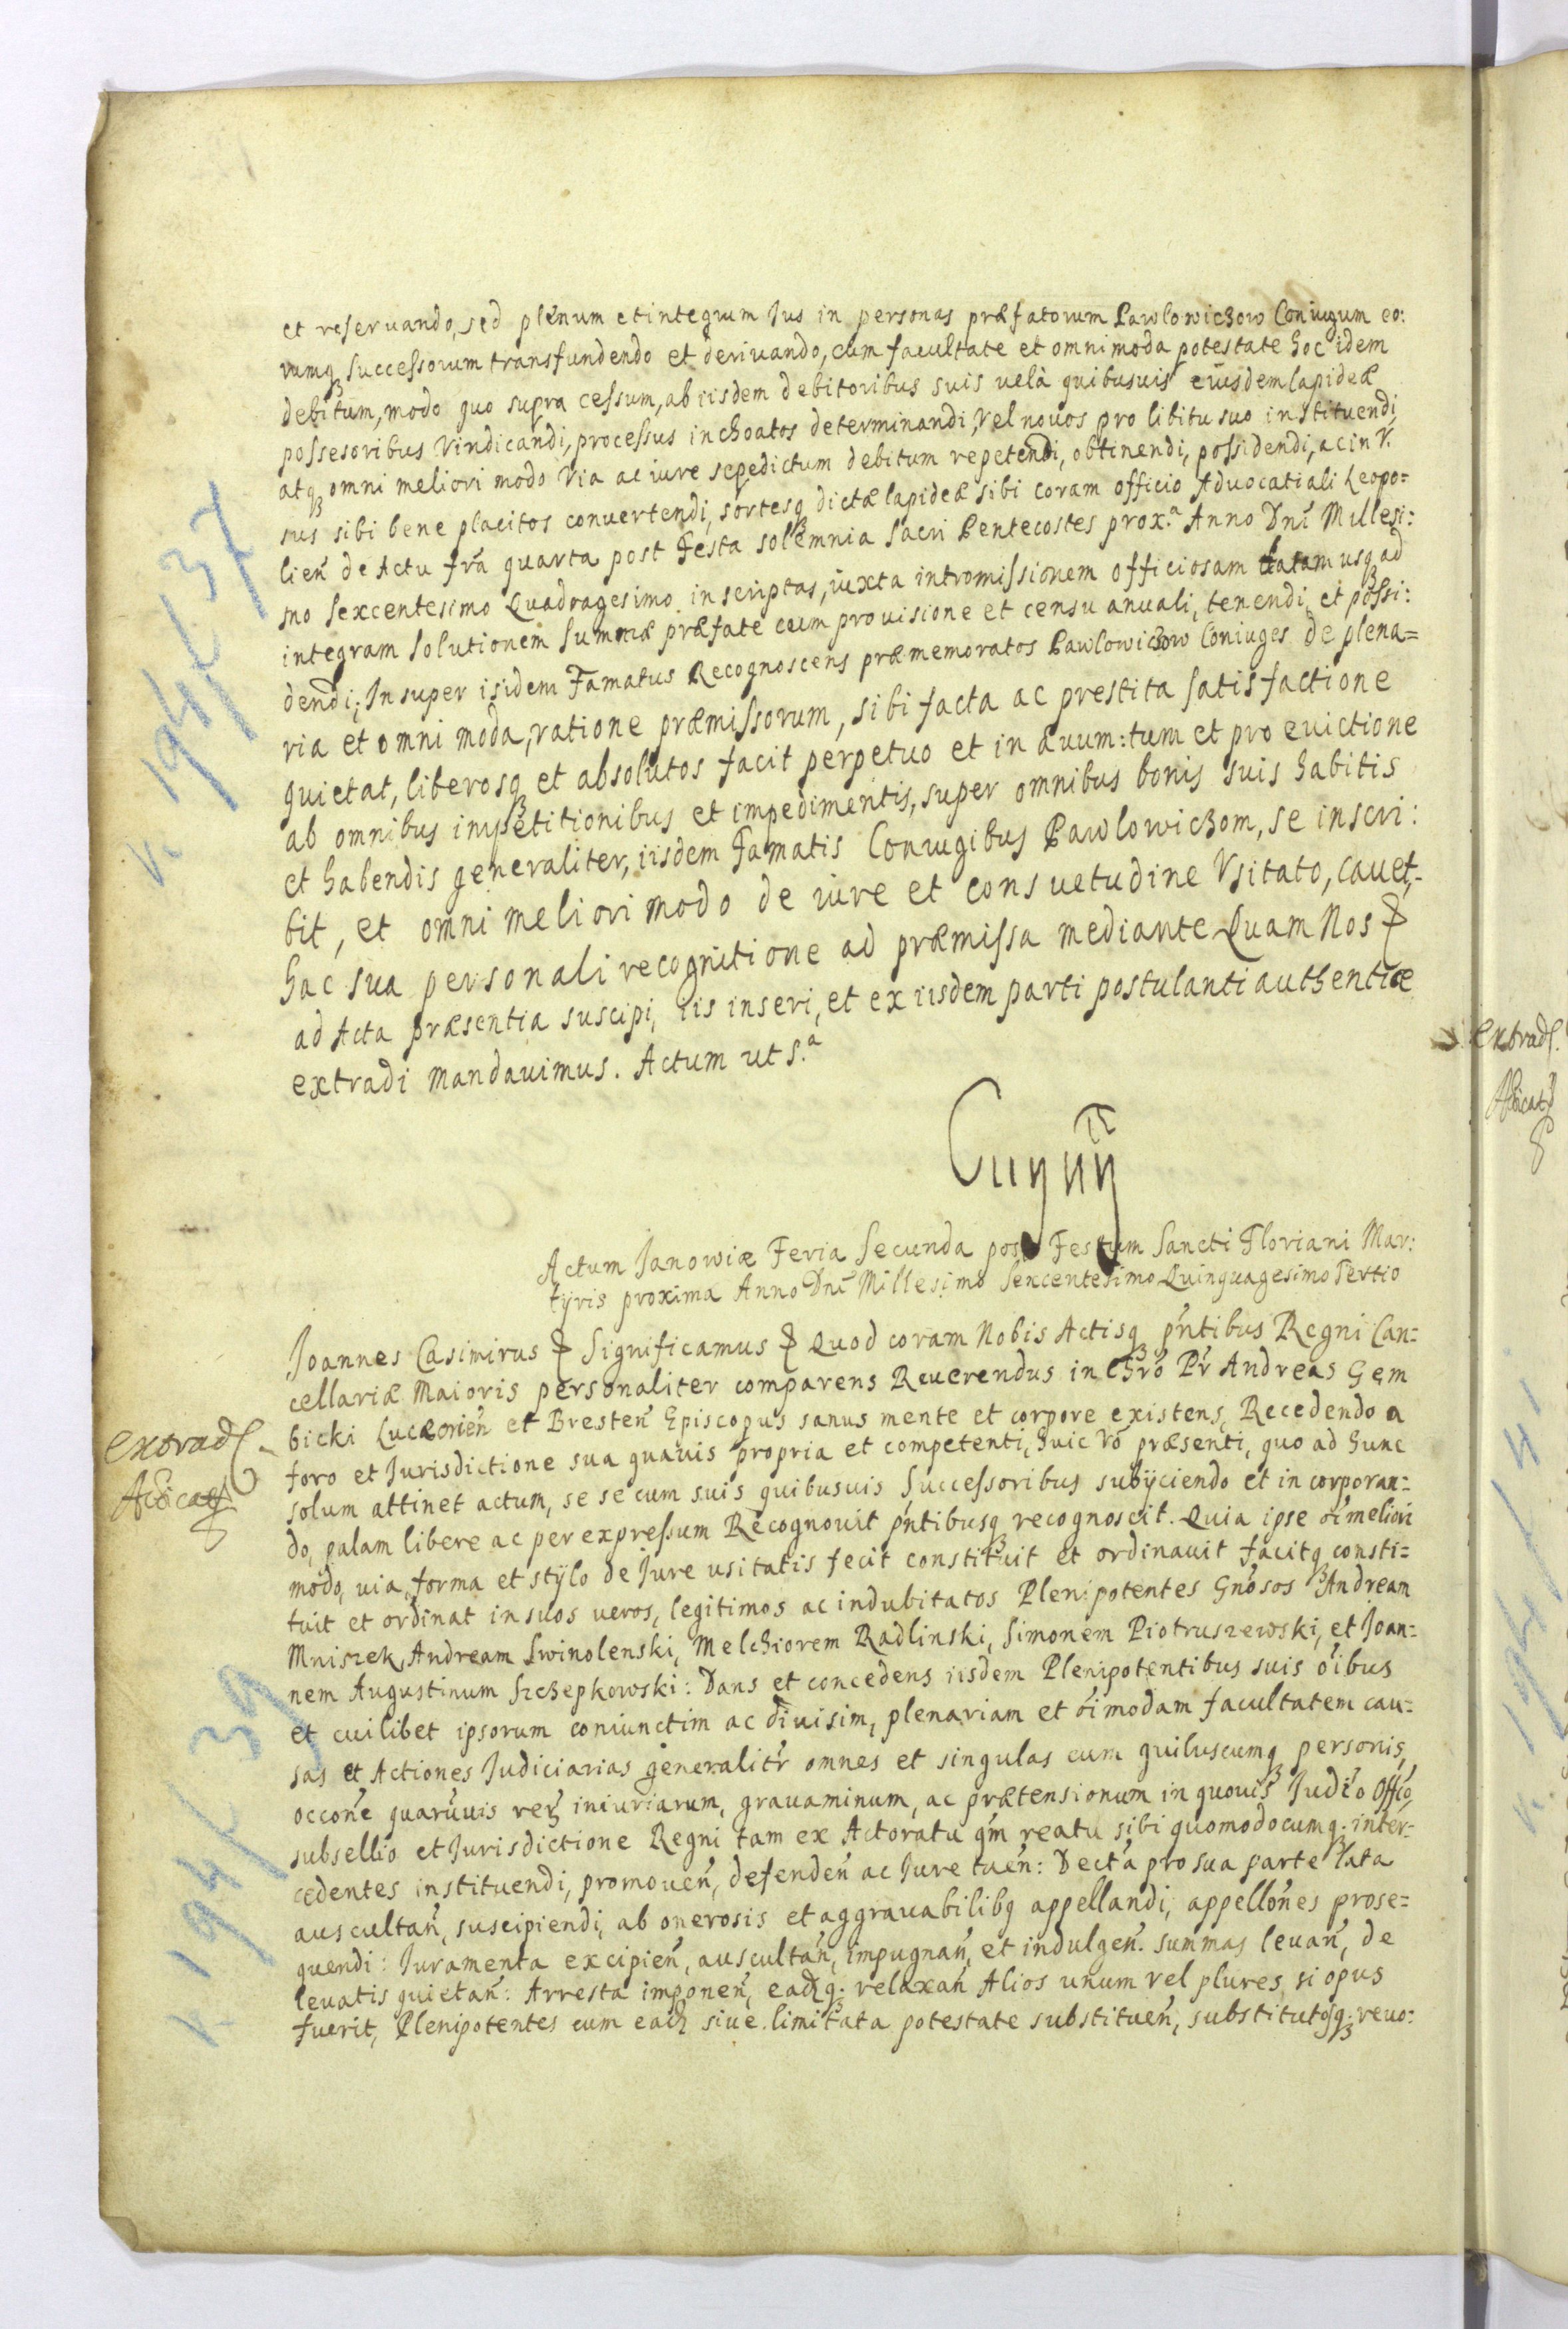 et reseruando, sed plenum et integrum Jus in personas præfatorum Pawlowiczow Coniugum eo:
rumq successorum transfundendo et deriuando, cum facultate et omnimoda potestate hoc idem
debitum, modo quo supra cessum, ab iisdem debitoribus suis uel à quibusuis eiusdem lapideæ
possesoribus Vindicandi, processus inchoatos determinandi, Vel nouos pro libitu suo instituendi,
atq omni meliori modo Via ac iure sepedictum debitum repetendi, obtinendi, possidendi, ac in V.
sus sibi bene placitos conuertendi, sortesq dictæ lapideæ sibi coram officio Aduocatiali Leopo=
lien̄ de Actu fr̄a quarta post Festa solemnia Sacri Pentecostes prox.a Anno Dn̄i Millesi:
mo Sexcentesimo Quadragesimo inscriptas, iuxta intromissionem officiosam datam usq ad
integram solutionem summæ præfate cum prouisione et censu anuali, tenendi et possi:
dendi; Insuper isidem Famatus Recognoscens præmemoratos Pawlowiczow Coniuges de plena=
ria et omni moda, ratione præmissorum, sibi facta ac prestita satisfactione
quietat, liberosq et absolutos facit perpetuo et in æuum: tum et pro euictione
ab omnibus impetitionibus et impedimentis, super omnibus bonis suis habitis
et habendis generaliter, iisdem Famatis Coniugibus Pawlowiczom, se inscri:
bit, et omni meliori modo de iure et consuetudine Vsitato, cauet,
hac sua personali recognitione ad præmissa mediante Quam Nos
ad Acta præsentia suscipi, iis inseri, et ex iisdem parti postulanti authentice
extradi mandauimus. Actum ut s.a
Actum Janowiæ Feria Secunda post Festum Sancti Floriani Mar:
tyris proxima Anno Dn̄i Millesimo Sexcentesimo Quinquagesimo Tertio
Joannes Casimirus Significamus Quod coram Nobis Actisq pn̄tibus Regni Can=
cellariæ Maioris personaliter comparens Reuerendus in Chr̄o Pr̄ Andreas Gem
bicki Luceorien̄ et Bresten̄ Episcopus sanus mente et corpore existens, Recedendo a
foro et Jurisdictione sua quauis propria et competenti, huic v̄o præsenti, quo ad hunc
solum attinet actum, se se cum suis quibusuis Successoribus subyciendo et in corporan=
do, palam libere ac per expressum Recognouit pn̄tibusq recognoscit. Quia ipse oi meliori
modo, uia, forma et stylo de Jure usitatis fecit constituit et ordinauit facitq consti=
tuit et ordinat in suos ueros, legitimos ac indubitatos Plenipotentes Gnōsos Andream
Mniszek, Andream Swinolenski, Melchiorem Radlinski, Simonem Piotruszewski, et Joan=
nem Augustinum Szczepkowski: Dans et concedens iisdem Plenipotentibus suis oībus
et cuilibet ipsorum coniunctim ac diuisim, plenariam et oīmodam facultatem cau=
sas et Actiones Judiciarias generalitr̄ omnes et singulas cum quibuscumq personis,
occon̄e quaruuis rer̄ iniuriarum, grauaminum, ac prætensionum in quouis Judīo Offīo,
subsellio et Jurisdictione Regni tam ex Actoratu qm̄ reatu sibi quomodocumq. inter=
cedentes instituendi, promouen̄, defenden̄ ac Jure tuen̄: Decta pro sua parte lata
auscultan̄, suscipiendi, ab onerosis et aggrauabilibq appellandi, appellōnes prose=
quendi: Juramenta excipien̄, auscultan̄, impugnan̄, et indulgen̄. summas leuan̄, de
leuatis quietan̄: Arresta imponen̄, eadq. relaxan̄ Alios unum vel plures, si opus
fuerit, Plenipotentes cum ead siue limitata potestate substituen̄, substitutosq. reuo:
extrad
V. 194/ 37
V. 194/ 39
extrad.